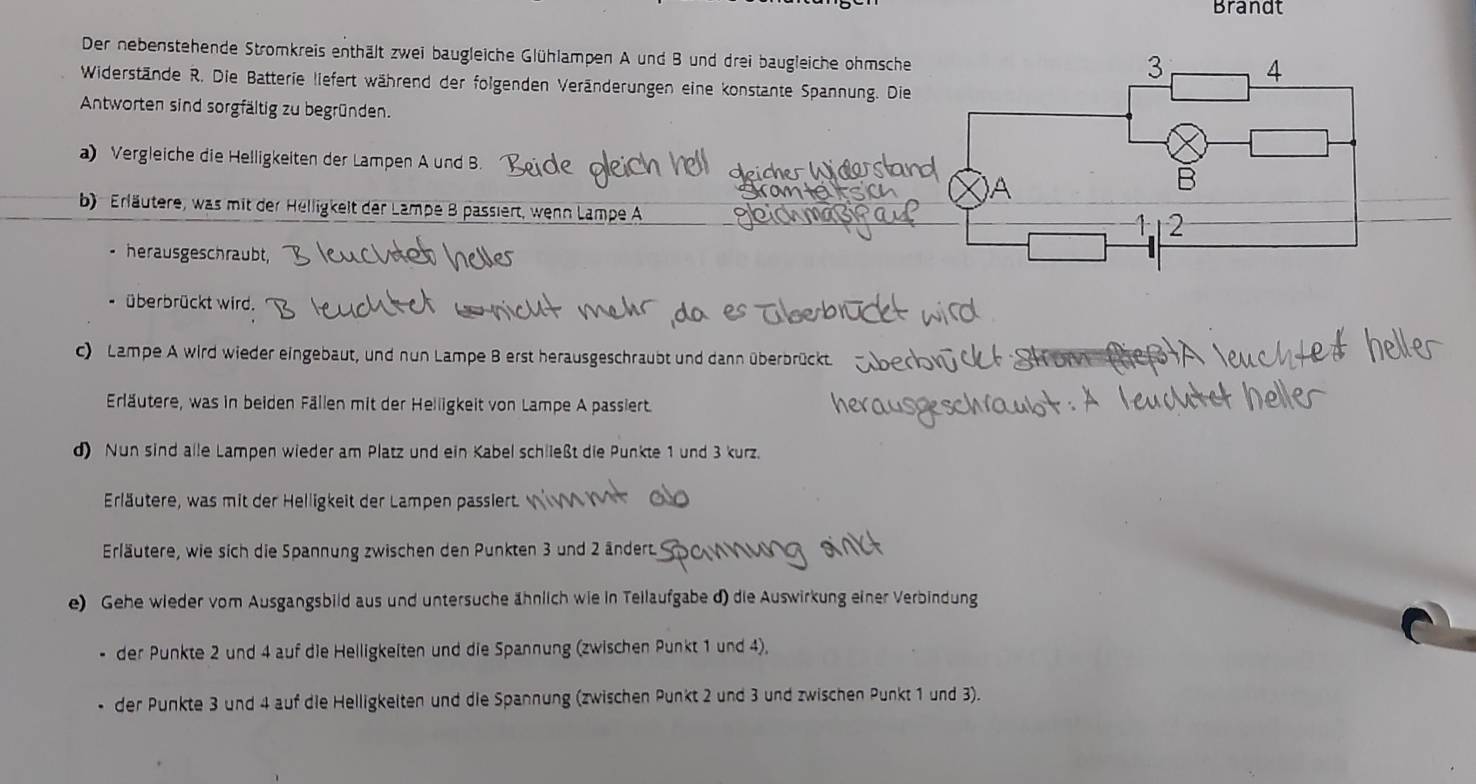 Brandt
Der nebenstehende Stromkreis enthält zwei baugleiche Glühlampen A und B und drei baugleiche ohmsche
Widerstände R. Die Batterie liefert während der folgenden Veränderungen eine konstante Spannung. Die
Antworten sind sorgfältig zu begründen.
3
4
A
B
1
2
a) Vergleiche die Helligkeiten der Lampen A und B. Beide gleich hell gleicher Widerstand
Strom teilt sich
gleichmäßig auf
b) Erläutere, was mit der Helligkeit der Lampe B passiert, wenn Lampe A
- herausgeschraubt, B leuchtet heller
- überbrückt wird. B leuchtet nicht mehr, da es überbrückt wird
c) Lampe A wird wieder eingebaut, und nun Lampe B erst herausgeschraubt und dann überbrückt. überbrückt: A leuchtet heller
Erläutere, was in beiden Fällen mit der Helligkeit von Lampe A passiert. herausgeschraubt: A leuchtet heller
d) Nun sind alle Lampen wieder am Platz und ein Kabel schließt die Punkte 1 und 3 kurz.
Erläutere, was mit der Helligkeit der Lampen passiert. nimmt ab
Erläutere, wie sich die Spannung zwischen den Punkten 3 und 2 ändert. Spannung sinkt
e) Gehe wieder vom Ausgangsbild aus und untersuche ähnlich wie in Teilaufgabe d) die Auswirkung einer Verbindung
- der Punkte 2 und 4 auf die Helligkeiten und die Spannung (zwischen Punkt 1 und 4),
- der Punkte 3 und 4 auf die Helligkeiten und die Spannung (zwischen Punkt 2 und 3 und zwischen Punkt 1 und 3).